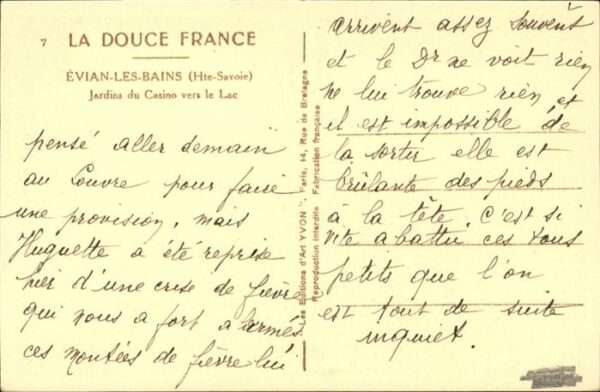 7
LA DOUCE FRANCE
ÉVIAN-LES-BAINS (Hte-Savoie)
Jardins du Casino vers le Lac
pensé aller demain
au Louvre pour faire
une provision, mais
Huguette a été reprise
hier d'une crise de fièvre
qui nous a fort alarmés.
ces montées de fièvre lui
Les Editions d'Art YVON, Paris, 14, Rue de Bretagne
Reproduction Interdite Fabrication française
arrivent assez souvent
et le Dr ne voit rien
ne lui trouve rien et
il est impossible de
la sortir elle est
brûlante des pieds
à la tête. C'est si
vite abattu ces tous
petits que l'on
est tout de suite
inquiet.